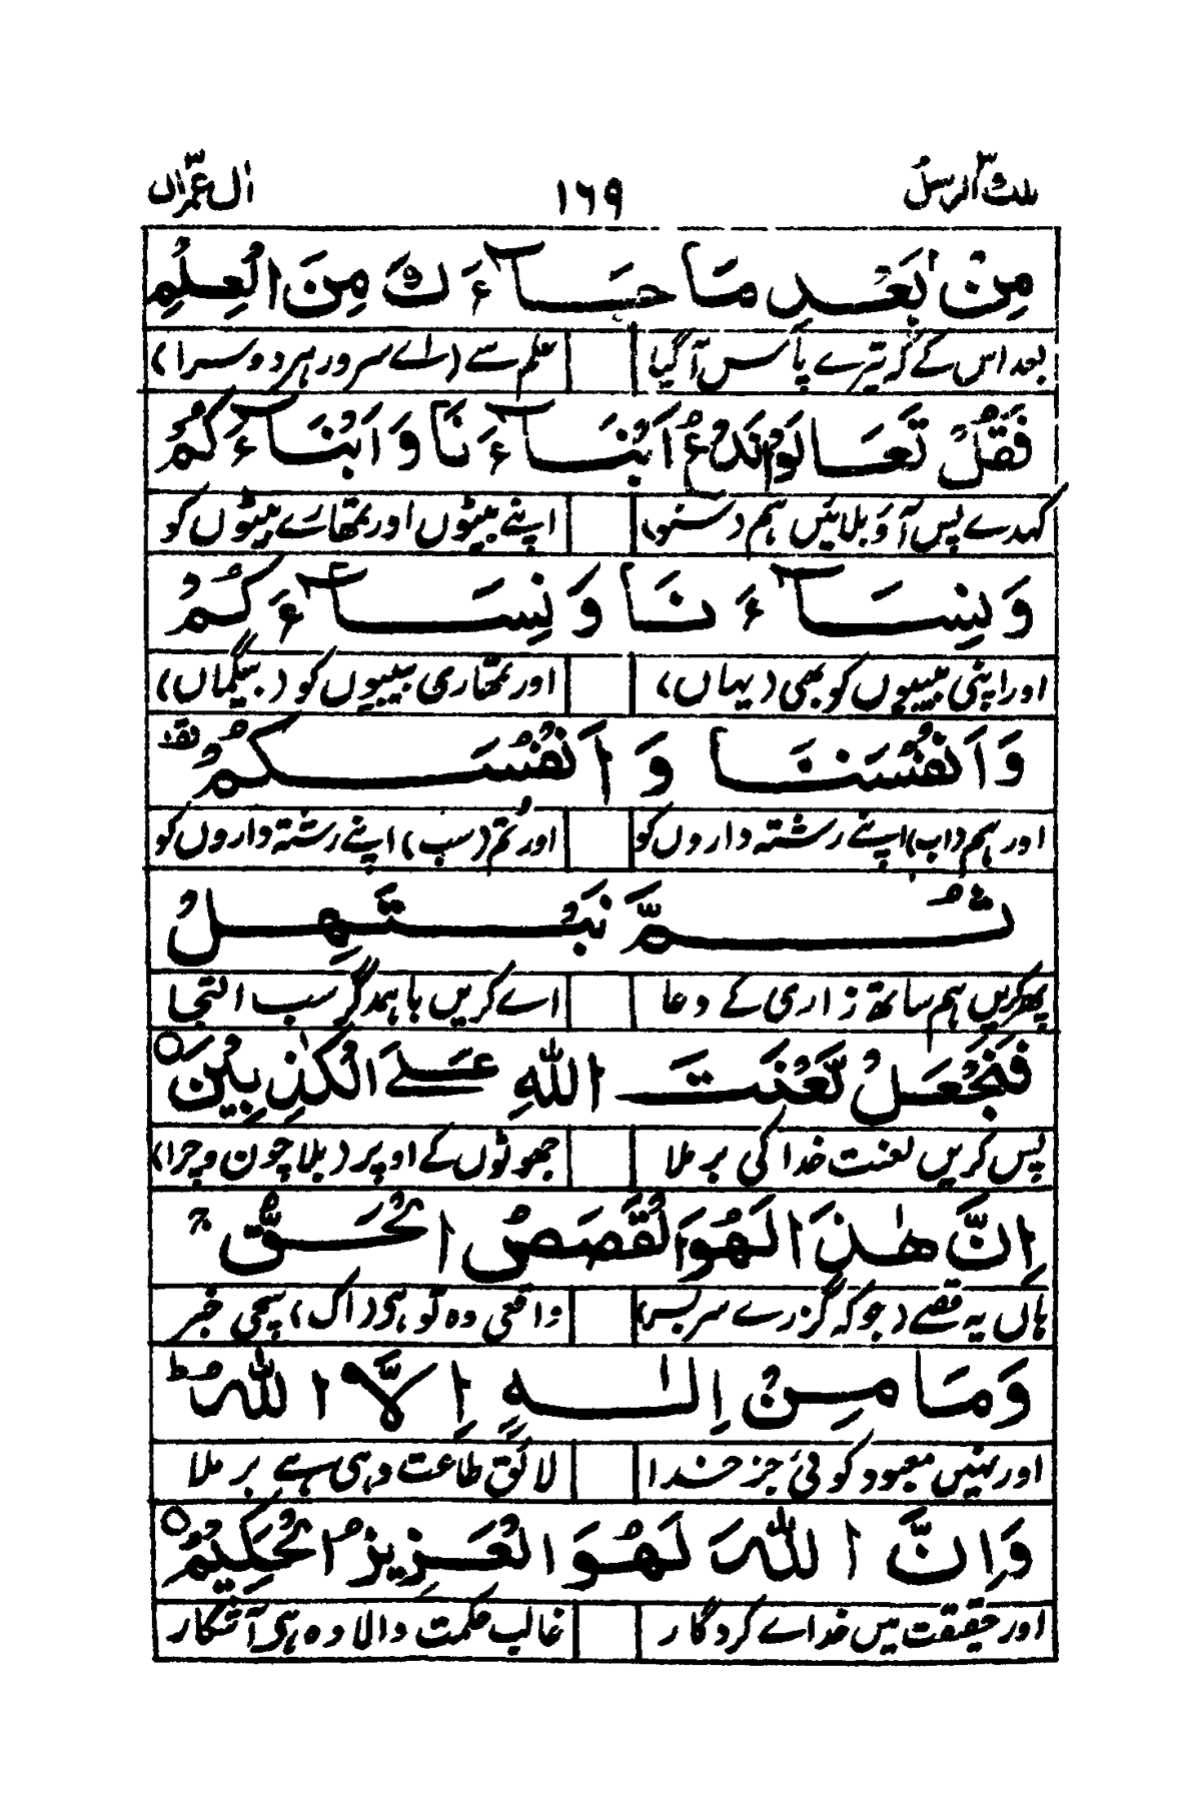 تلك الرسل ٣ ١٦٩ اٰل عمرٰن ٣
مِنْۢ بَعْدِ مَا جَآءَكَ مِنَ الْعِلْمِ
بعد اس کے کہ تیرے پاس آ گیا علم سے (اے سرور ہر دوسرا)
فَقُلْ تَعَالَوْا نَدْعُ اَبْنَآءَنَا وَ اَبْنَآءَكُمْ
کہدے پس آؤ بلائیں ہم (سنو) اپنے بیٹوں اور تمھارے بیٹوں کو
وَ نِسَآءَ نَا وَ نِسَآءَكُمْ
اور اپنی بیبیوں کو بھی (یہاں) اور تمھاری بیبیوں کو (بیگماں)
وَ اَنْفُسَنَا وَ اَنْفُسَكُمْ
اور ہم (اب) اپنے رشتہ داروں کو اور تم (سب) اپنے رشتہ داروں کو
ثُمَّ نَبْتَهِلْ
پھر کریں ہم ساتھ زاری کے دعا اے کریں باہمدگر سب التجا
فَنَجْعَلْ لَّعْنَتَ اللهِ عَلَى الْكٰذِبِيْنَ ○
پس کریں لعنت خدا کی برملا جھوٹوں کے اوپر (بلا چون و چرا)
اِنَّ هٰذَا لَهُوَ الْقَصَصُ الْحَقُّ ج
ہاں یہ قصے (جو کہ گزرے سربسر) واقعی وہ تو ہی (اک) سچی خبر
وَمَا مِنْ اِلٰهٍ اِلَّا اللهُ ط
اور نہیں معبود کوئی جز خدا لائق طاعت وہی ہے برملا
وَاِنَّ اللهَ لَهُوَ الْعَزِيْزُ الْحَكِيْمُ ○
اور حقیقت میں خداے کردگار غالب حکمت والا وہ ہی آشکار